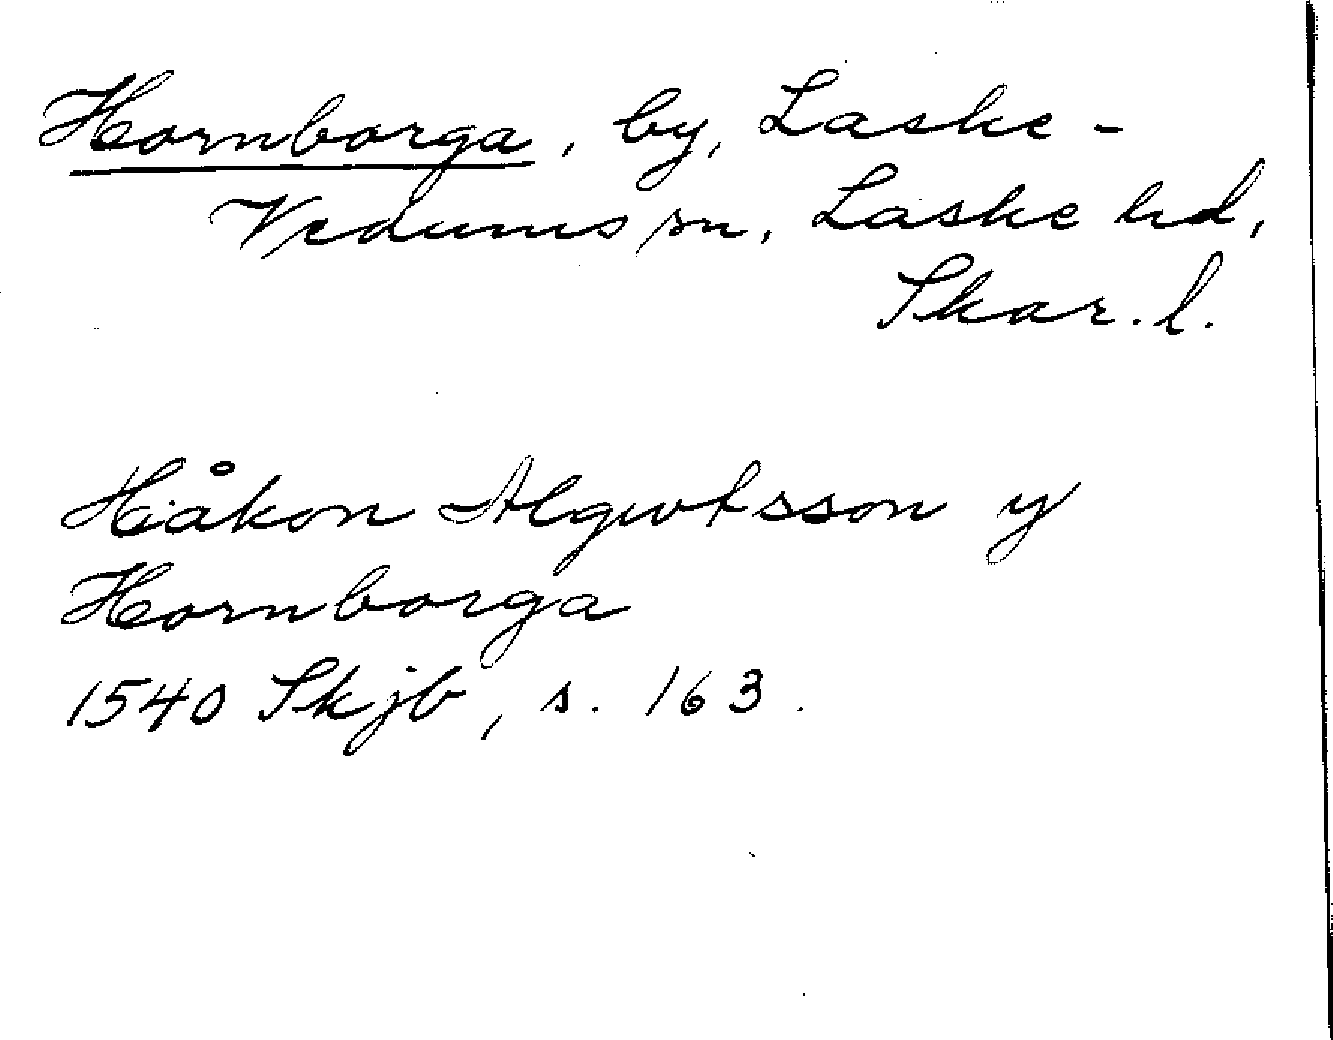 Hornborga, by, Laske-
Vedums sn, Laske hd,
Skar. l.
Håkon Algwtsson y
Hornborga
1540 Skjb, s. 163.